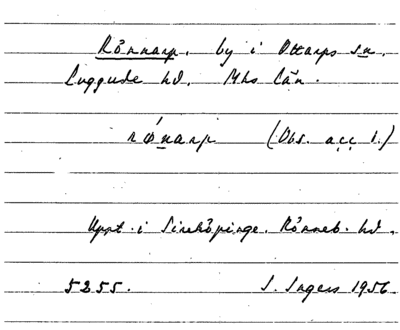 Rönnarp. by i Ottarps sn.
Luggude hd. Mhs län.
rǿnarp (Obs. acc 1.)
Uppt. i Simköpinge. Rönneb. hd.
5255. I. Ingers 1956